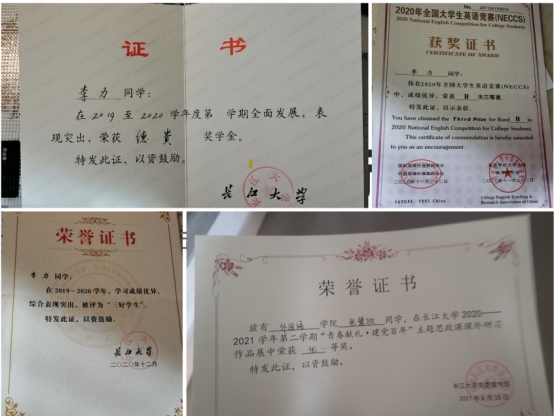 证 书
李力 同学：
在 2019 至 2020 学年度第 学期全面发展，表
现突出，荣获 德贵 奖学金。
特发此证，以资鼓励。
长江大学
2020年全国大学生英语竞赛(NECCS)
2020 National English Competition for College Students
获奖证书
CERTIFICATE OF AWARD
李 力 同学：
你在2020年全国大学生英语竞赛(NECCS)
中，成绩优异，荣获 B 类三等奖
特发此证，以示表彰。
You have obtained the Third Prize for Band B in
2020 National English Competition for College Students.
This certificate of commendation is hereby awarded
to you as an encouragement.
IATEFL·TEFL China
College English Teaching &
Research Association of China
荣誉证书
李 力 同学：
在2019—2020学年，学习成绩优异，
综合表现突出，被评为“三好学生”。
特发此证，以资鼓励。
长江大学
二〇二〇年十二月
荣誉证书
兹有 外国语 学院 同学，在长江大学2020—
2021学年第二学期“青春献礼·建党百年”主题思政课课外研习
作品展中荣获 优 等奖。
特发此证，以资鼓励。
长江大学党委宣传部
2021年6月25日